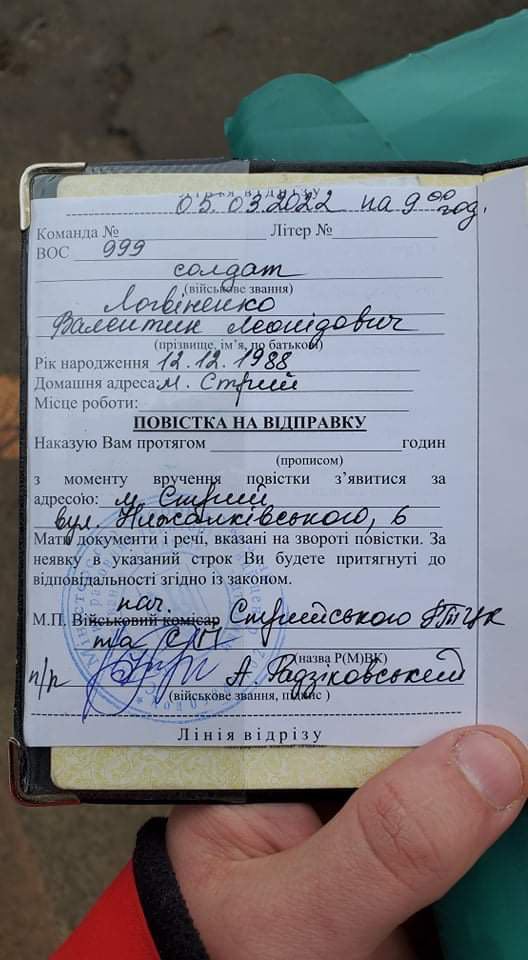 Лінія відрізу
05.03.2022 на 9 00 год.
Команда № Літер №
ВОС 999
солдат
(військове звання)
Логвіненко
Валентин Леонідович
(прізвище, ім’я, по батькові)
Рік народження 12.12.1988
Домашня адреса: м. Стрий
Місце роботи:
ПОВІСТКА НА ВІДПРАВКУ
Наказую Вам протягом годин
(прописом)
з моменту вручення повістки з’явитися за
адресою: м. Стрий
вул. Нижанківського, 6
Мати документи і речі, вказані на звороті повістки. За
неявку в указаний строк Ви будете притягнуті до
відповідальності згідно із законом.
нач.
М.П. Військовий комісар Стрийського РТЦК
та СП
(назва Р(М)ВК)
п/р А. Радзіковський
(військове звання, підпис )
Лінія відрізу